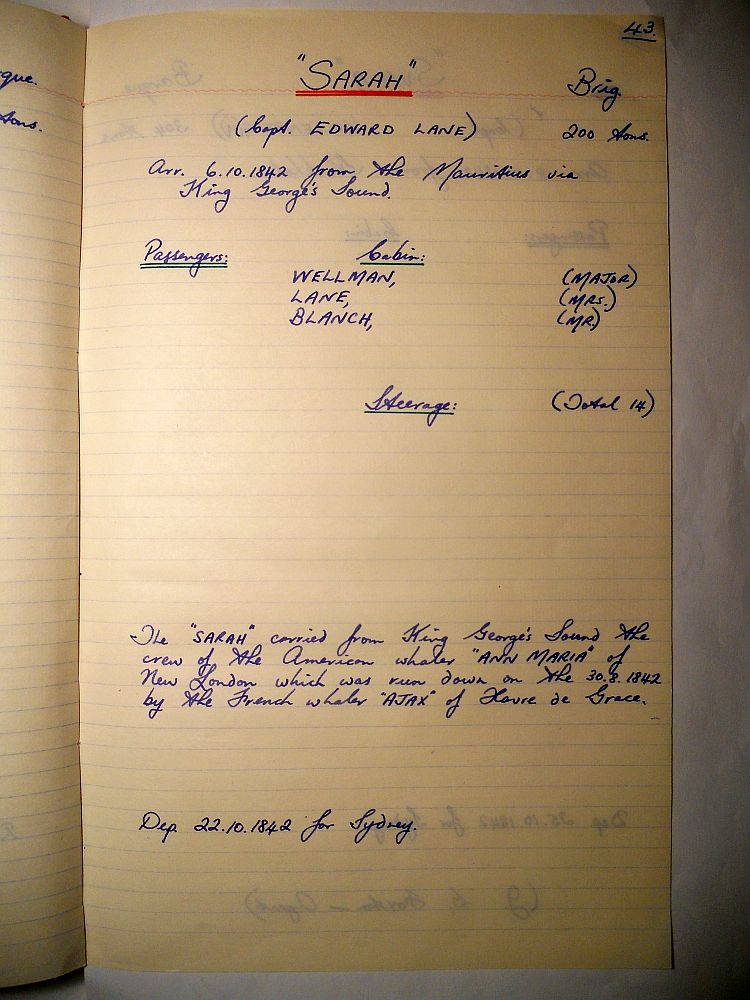 43.
"SARAH" Brig.
(Capt. EDWARD LANE) 200 tons.
Arr. 6.10.1842 from the Mauritius via
King George's Sound.
Passengers: Cabin:
WELLMAN, (MAJOR)
LANE, (MRS.)
BLANCH, (MR.)
Steerage: (Total 14)
The "SARAH" carried from King George's Sound the
crew of the American whaler "ANN MARIA" of
New London which was run down on the 30.8.1842
by the French whaler "AJAX" of Havre de Grace.
Dep. 22.10.1842 for Sydney.
tons.